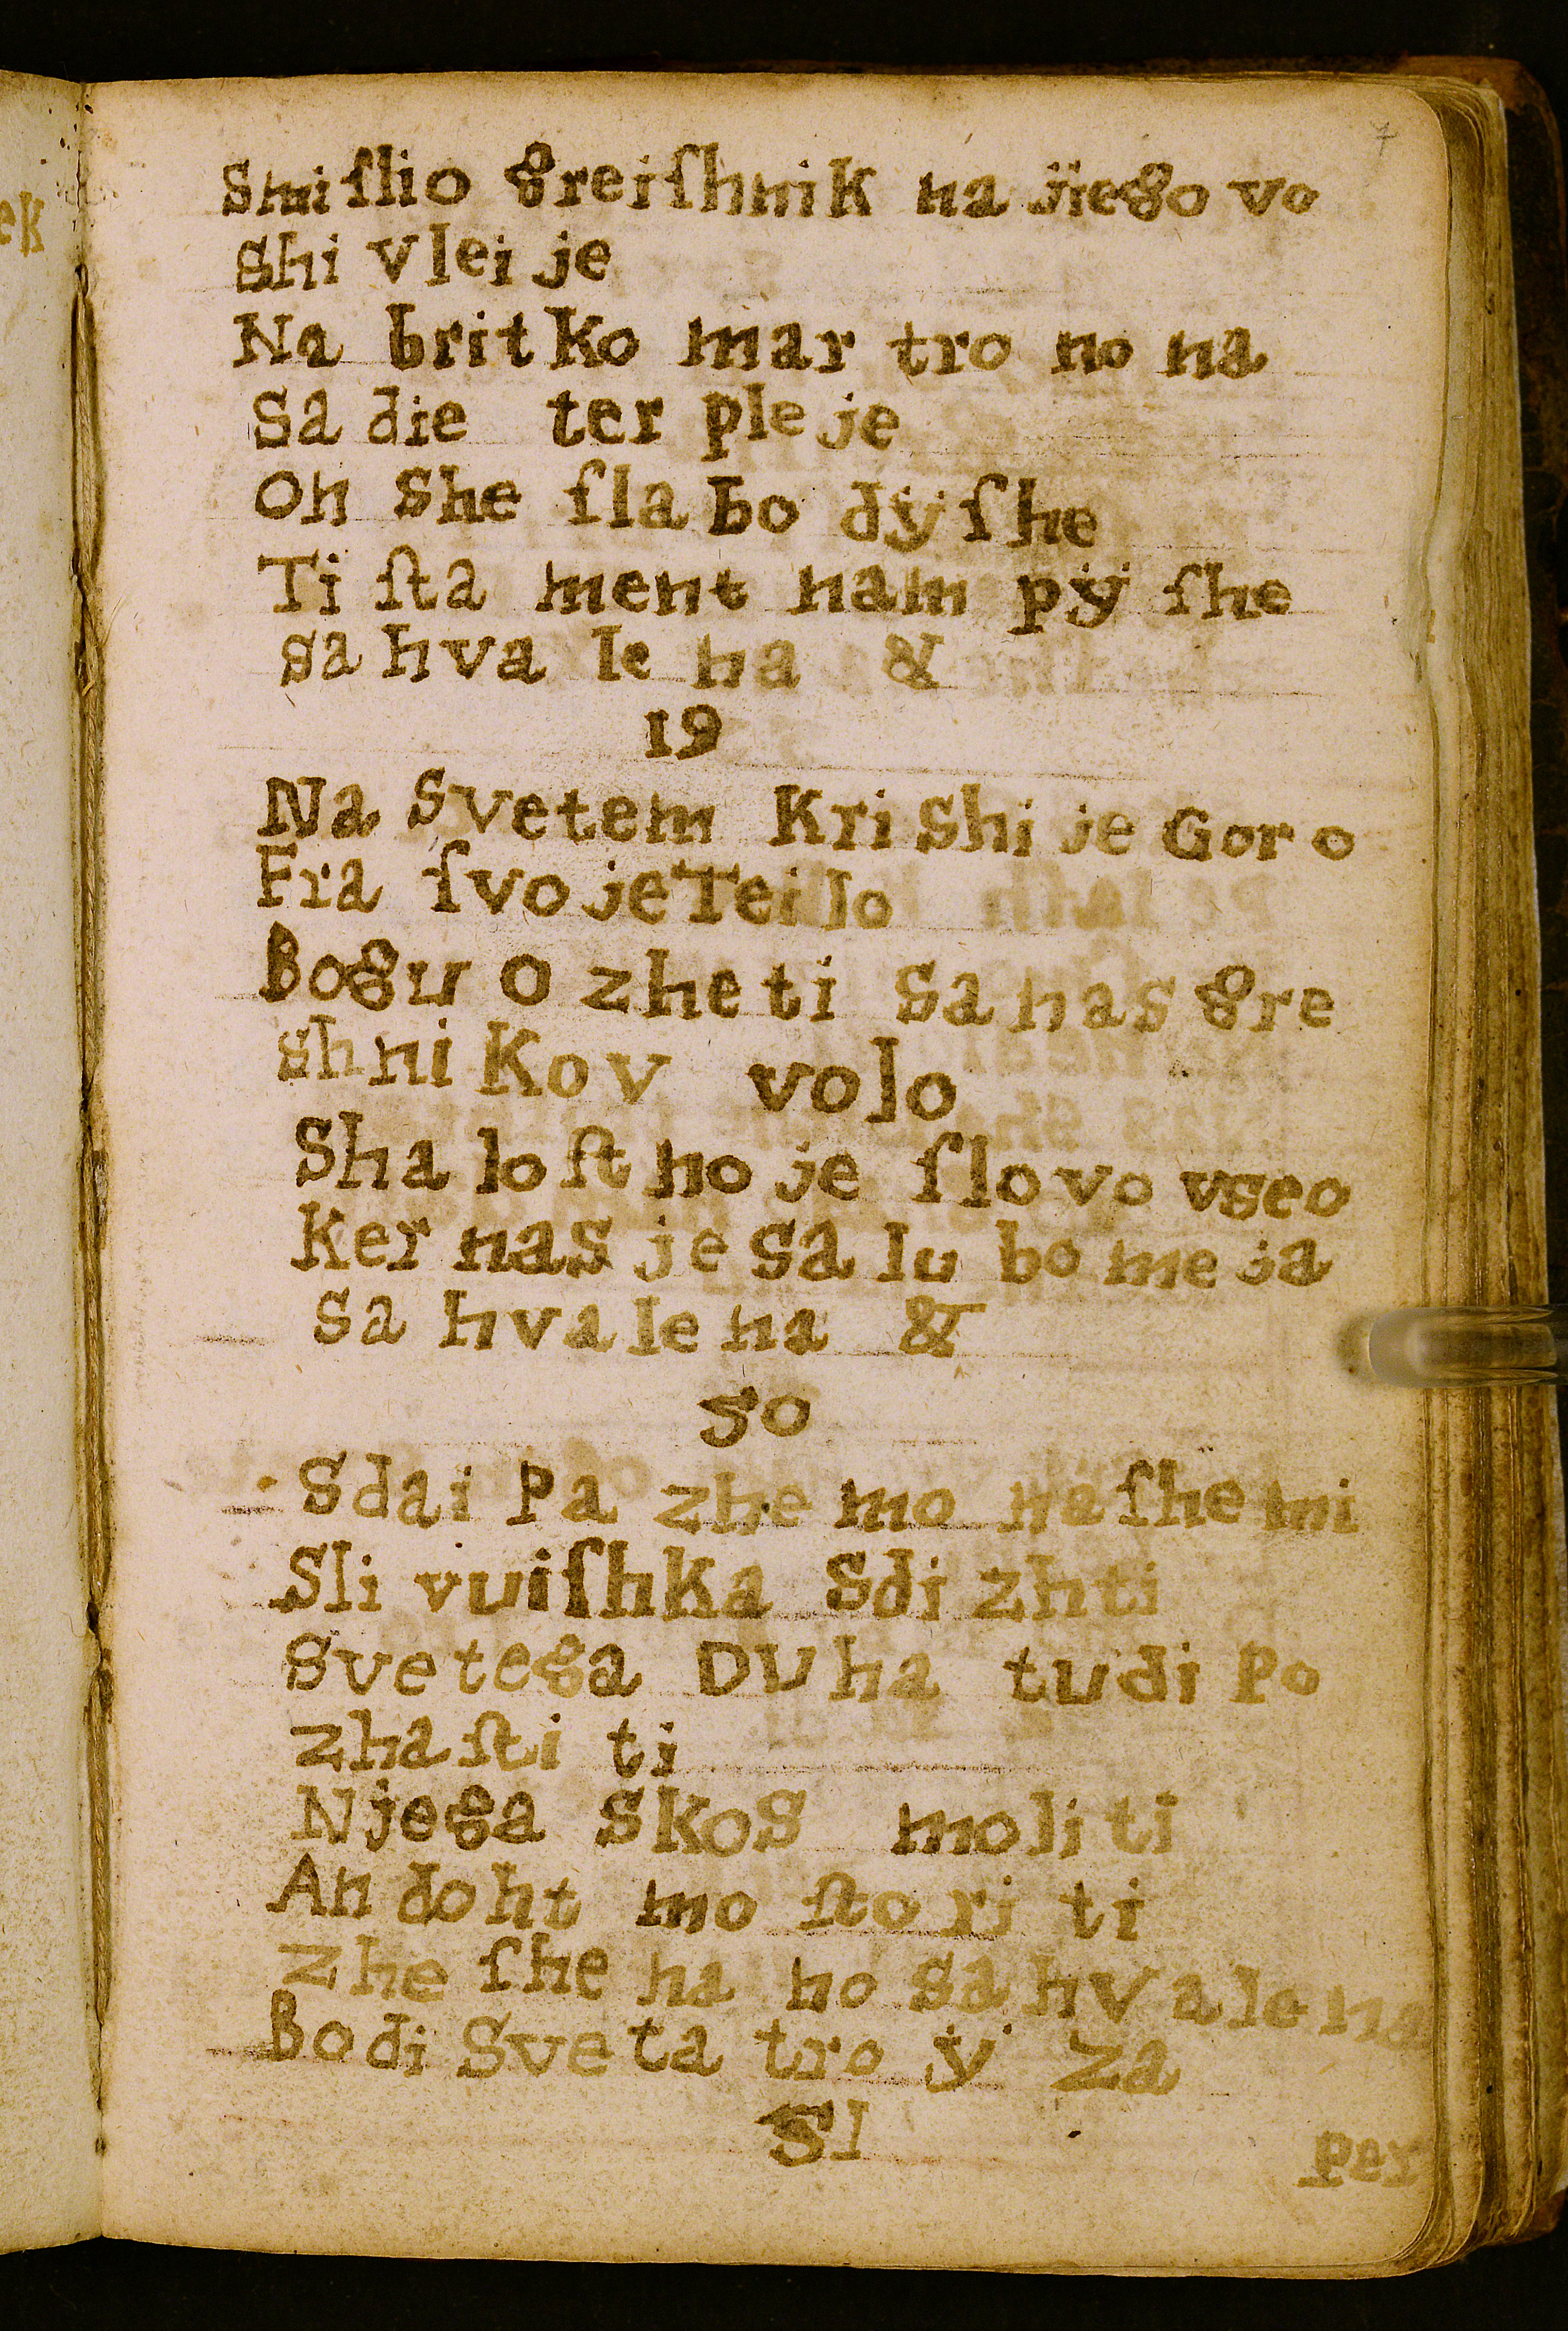 7
Smiſlio greiſhnik na jiego vo
Shi vlei je
Na britKo mar tro no na
Sa die ter ple je
On She ſla bo dÿ ſhe
Ti ſta ment nam pÿ ſhe
sa hva le na &
19
Na Svetem Kri Shi je Gor o
Fra ſvo je Tei lo
Bogu O zhe ti Sa nas gre
shni Kov volo
Sha lo ſt no je ſlo vo vseo
Ker nas je sa lu bo me ja
sa hva le na &
50
Sdai Pa zhe mo na ſhe mi
Sli vuiſhKa Sdi zhti
Svetega DUha tudi Po
zha ſti ti
Njega SKoS moli ti
An do ht mo ſto ri ti
zhe ſhe na no sa hv a le na
Bo di Sve ta tro ÿ za
51
per
ek